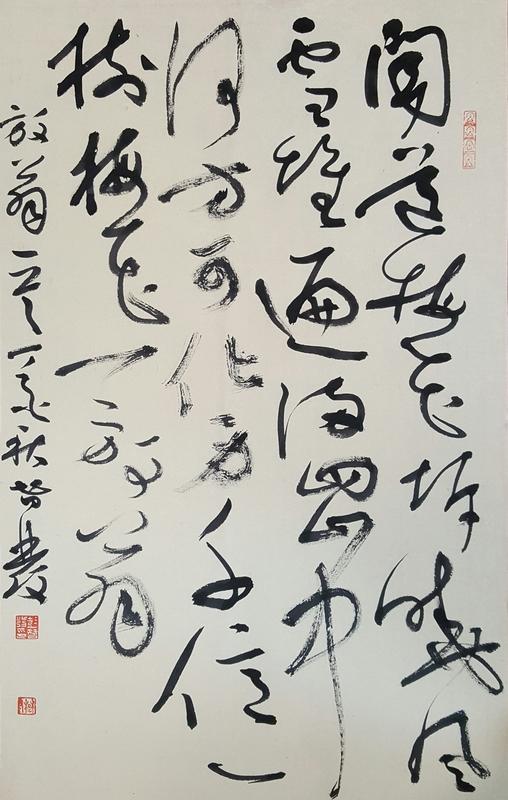 聞道梅花坼曉風
雪堆遍滿四山中
何方可化身千億一
樹梅花一放翁
放翁 秋